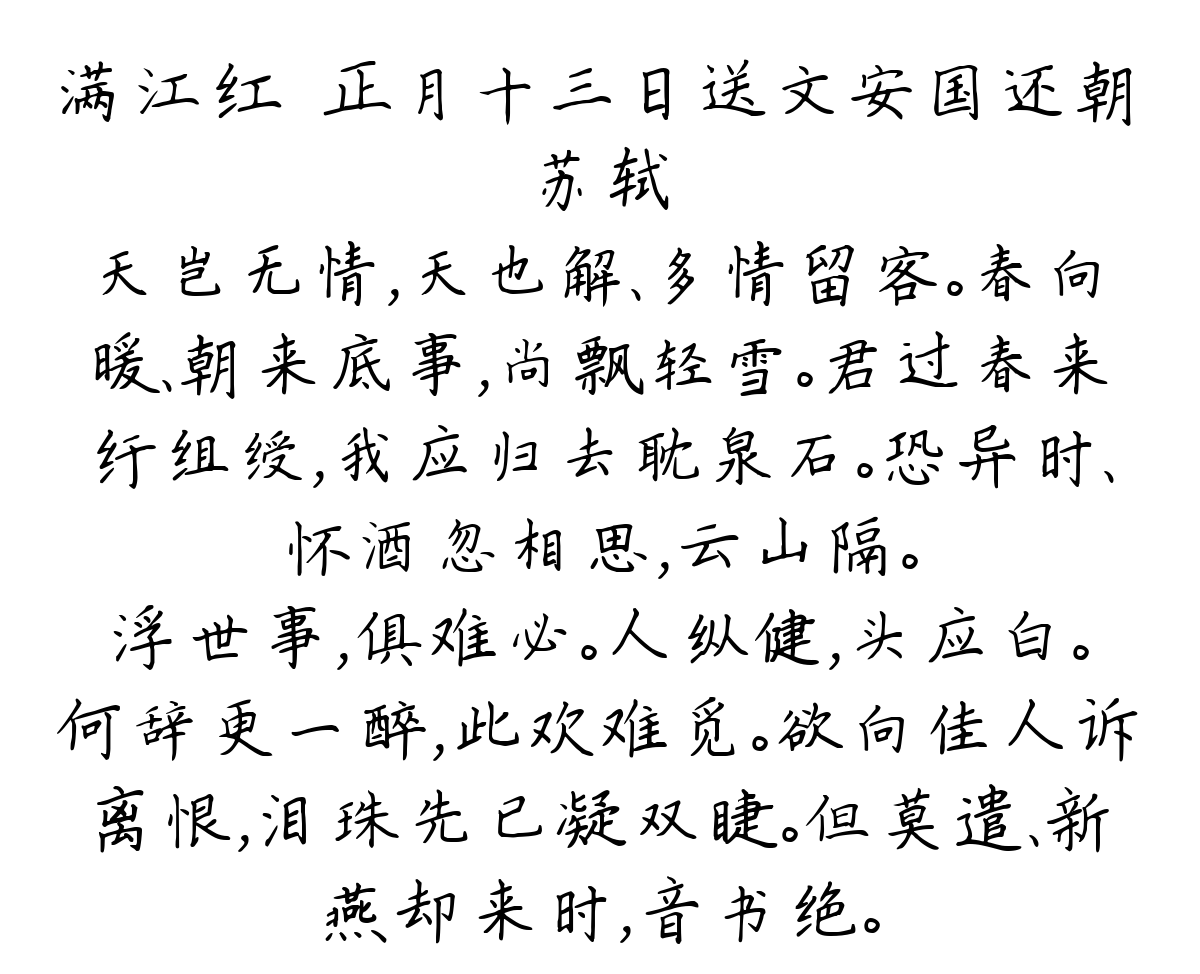 满江红 正月十三日送文安国还朝
苏轼
天岂无情,天也解、多情留客。春向
暖、朝来底事,尚飘轻雪。君过春来
纡组绶,我应归去耽泉石。恐异时、
怀酒忽相思,云山隔。
浮世事,俱难必。人纵健,头应白。
何辞更一醉,此欢难觅。欲向佳人诉
离恨,泪珠先已凝双睫。但莫遣、新
燕却来时,音书绝。